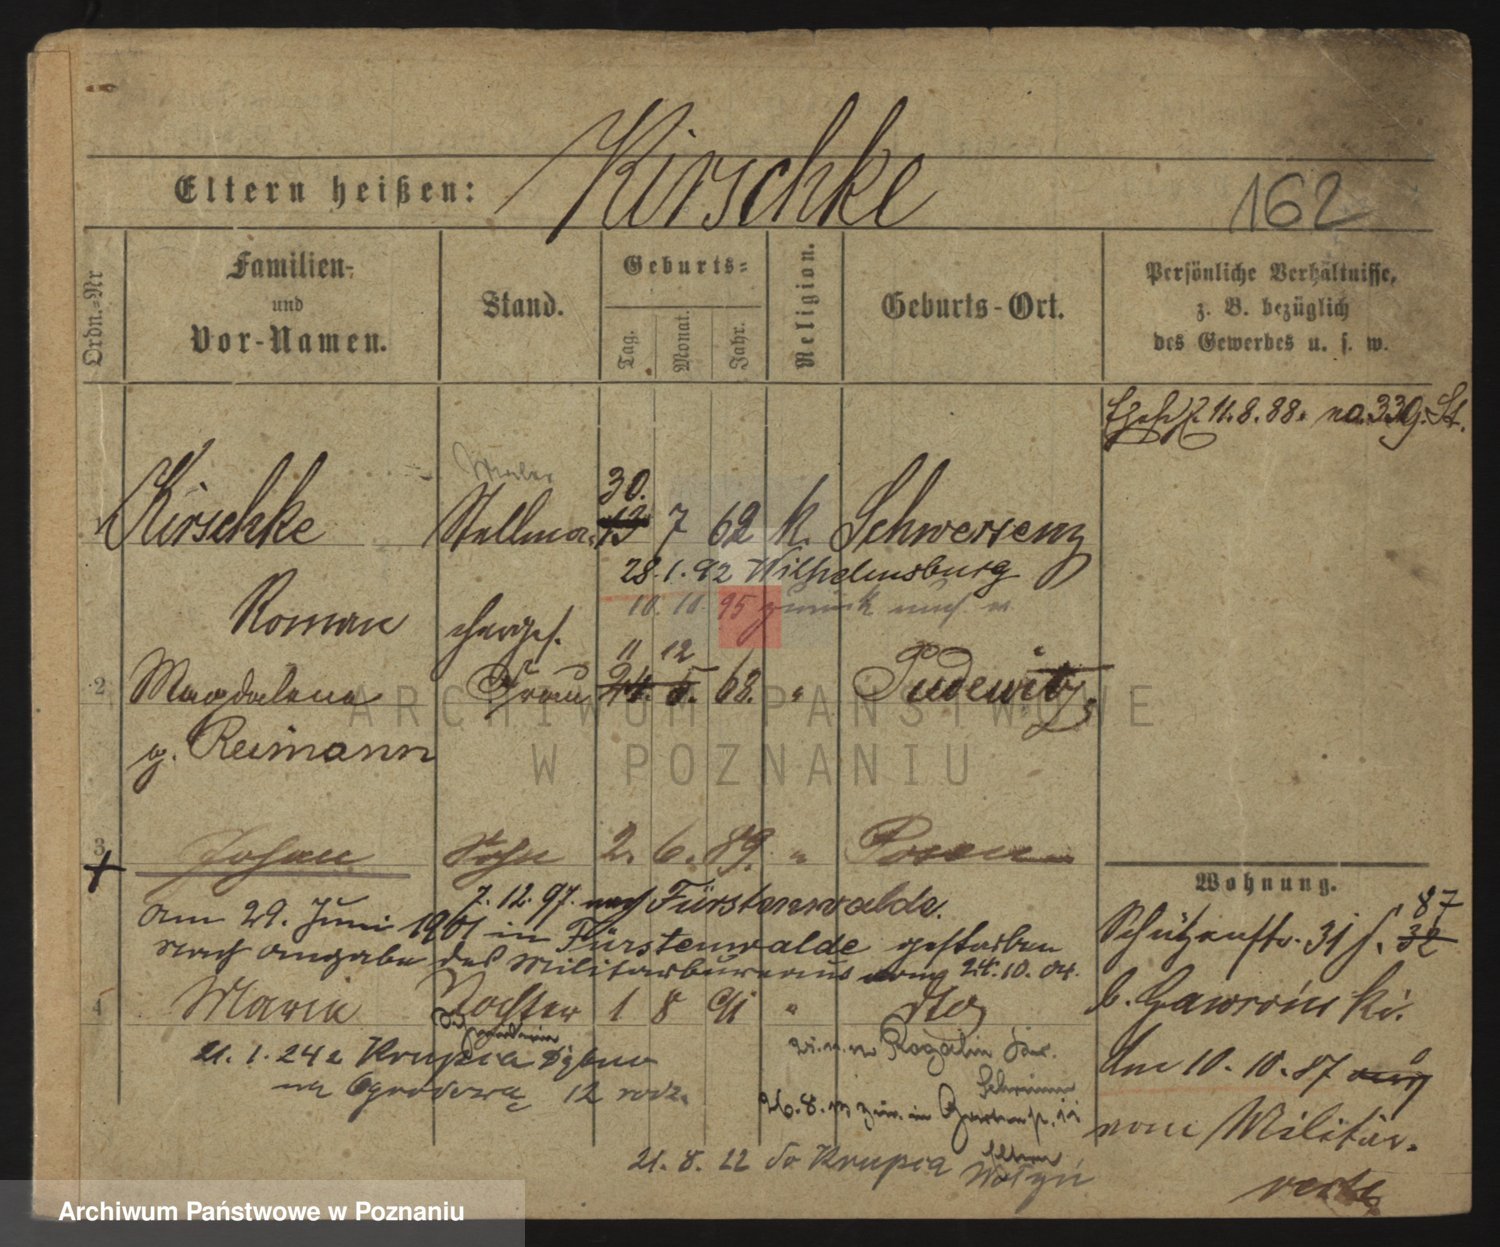 Kirschke
Eltern heißen:
162
Ordn.-Nr
Familien-
und
Vor-Namen.
Stand.
Geburts-
Tag.
Monat.
Jahr.
Religion.
Geburts-Ort.
Persönliche Verhältnisse,
z. B. bezüglich
des Gewerbes u. s. w.
11.8.88. no. 339. St.
30.
1 Kirschke Stellma- 13 7 62 k. Schwersenz
28.1.92 Wilhelmsburg
Roman chergs.
10. 10. 95 zurück
11 12
2 Magdalena Frau 24. 5. 68. " Pudewitz
g. Reimann
ARCHIWUM PAŃSTWOWE
W POZNANIU
3 Johann Sohn 2. 6. 89. " Posen
7.12.97. nach Fürstenwalde.
Am 29. Juni 1901 in Fürstenwalde gestorben
nach Angabe des Militärbureaus vom 24.10.04.
4 Maria Tochter 1 8 91 " dto
21.1.24 z Krupia
na Ogrodową 12
Rogalin
26.8. zur. in
21.8.22 do Krupia
Wołyń
Wohnung.
87
Schützenstr. 31 f. 32
b. Gawroński.
Am 10.10.87
vom Militär.
verte
Archiwum Państwowe w Poznaniu